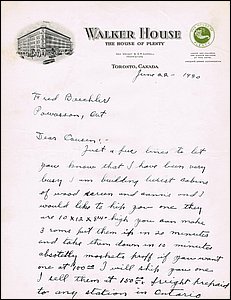 WALKER HOUSE
THE HOUSE OF PLENTY
TORONTO, CANADA
June 22 - 1930
Fred Buechler
Powassan, Ont
Dear Cousin:
Just a few lines to let
you know that I have been very
busy I am building tourist cabins
of wood screen and and I
would like to ship you one they
are 10 x 12 x 8 high you can make
3 rooms put them up in 20 minutes
and take them down in 10 minutes
absolutly proff if you want
one at 100 00 I will ship you one
I sell them at 150 00 freight prepaid
to any station in Ontario